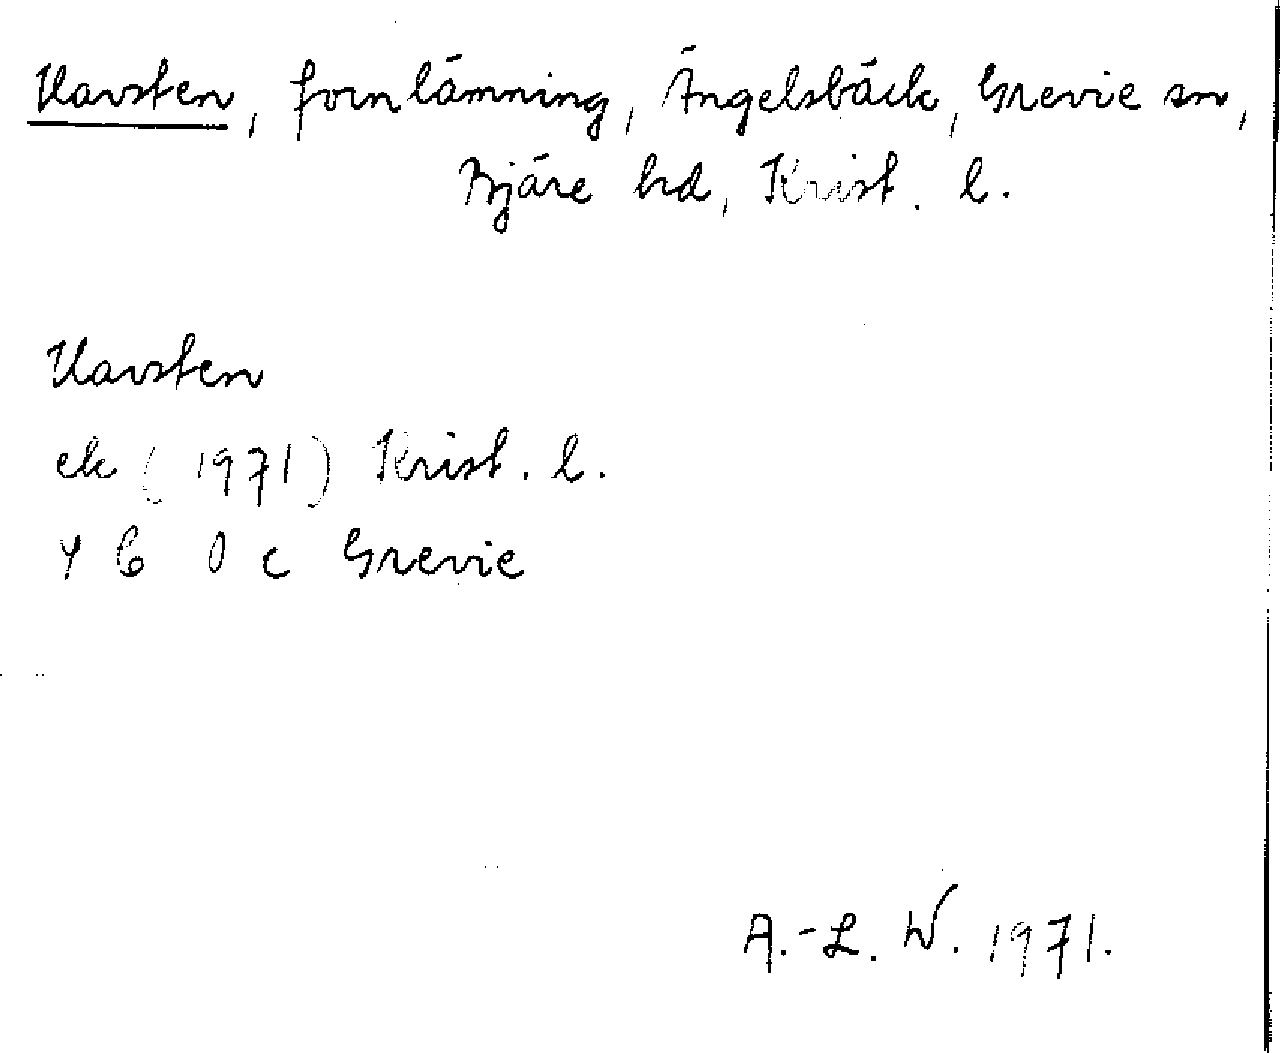 Karsten, fornlämning, Ängelsbäck, Grevie sn,
Bjäre hd, Krist. l.
Karsten
ek (1971) Krist. l.
4 C 0 c Grevie
A.-L. W. 1971.